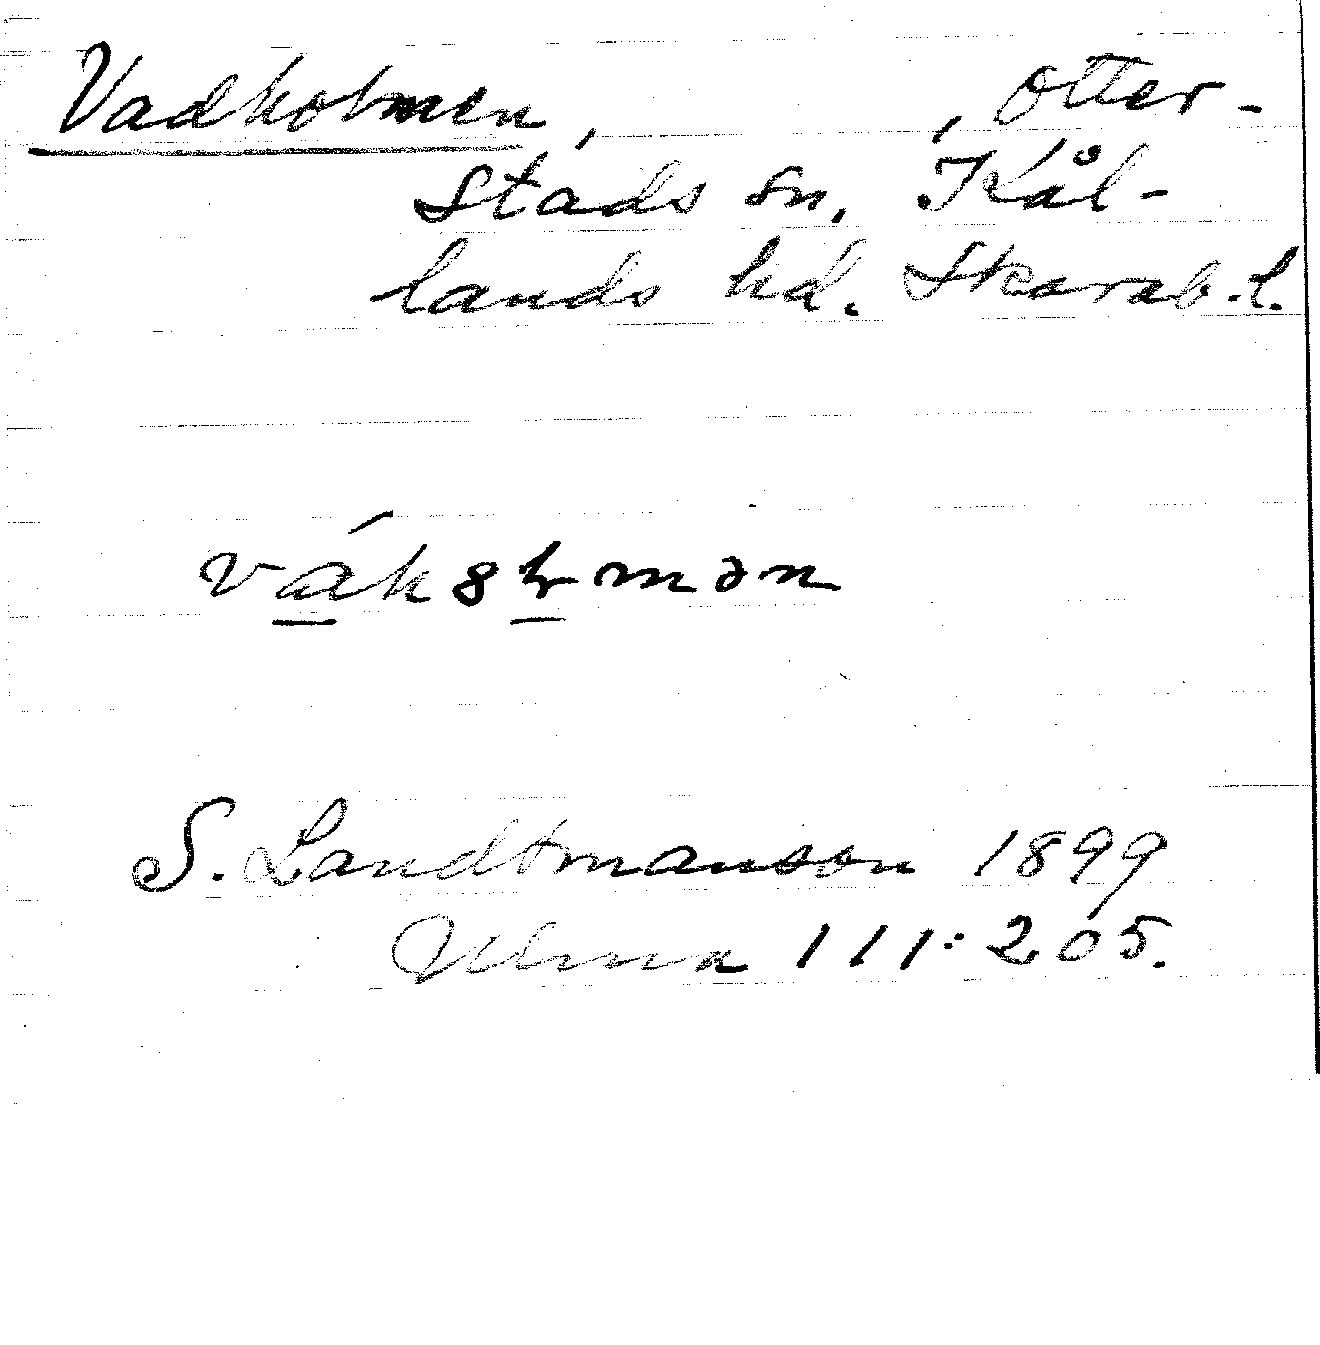 Vadholmen, , Otter-
stads sn, Kål-
lands hd. Skarab. l.
S. Landtmanson 1899
Ulma 111:205.